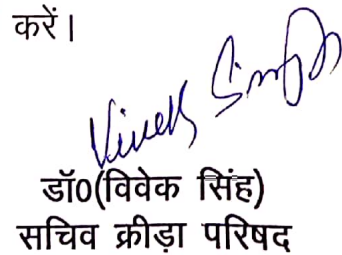 करें।
Vivek Singh
डॉ0(विवेक सिंह)
सचिव क्रीड़ा परिषद